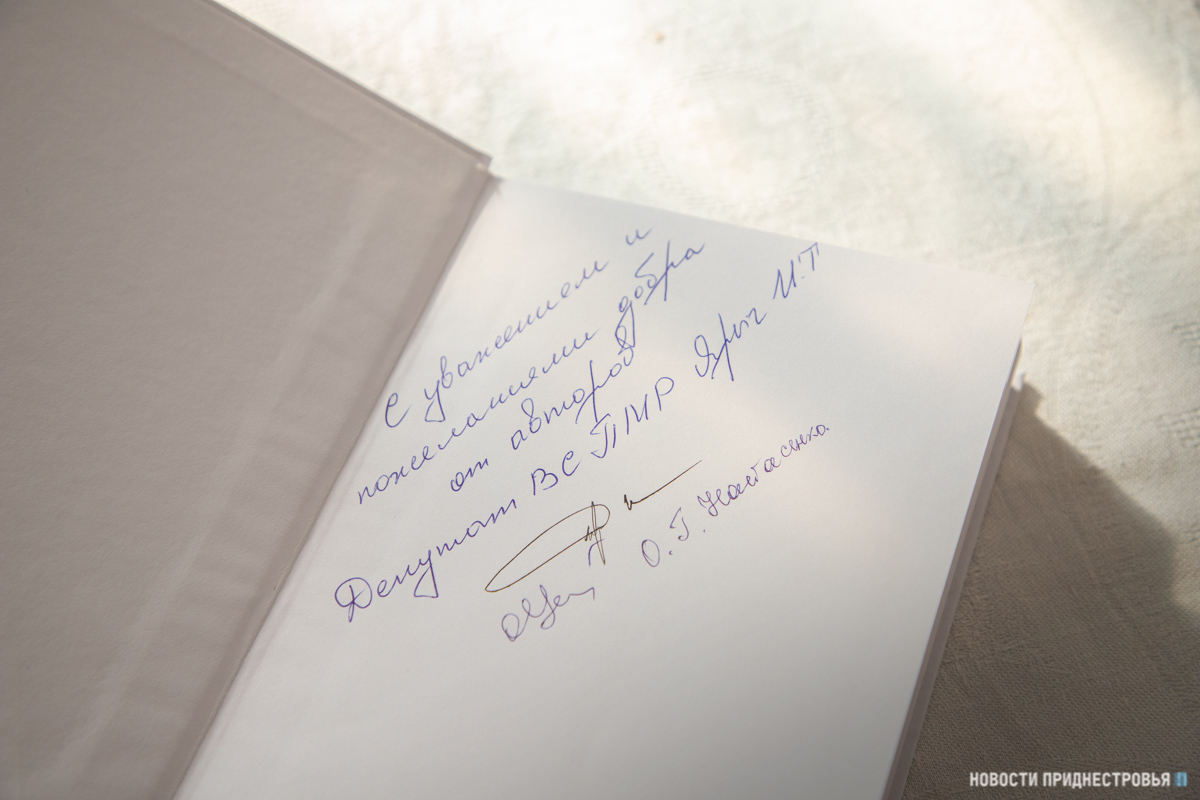 С уважением и
пожеланиями добра
от авторов
Депутат ВС ПМР Ярыч И.Т
О.Г. Настасенко.
НОВОСТИ ПРИДНЕСТРОВЬЯ